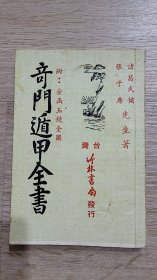 諸葛武侯
張子房 先生著
附:金函玉鏡全圖
奇門遁甲全書
台灣
竹林書局
發行